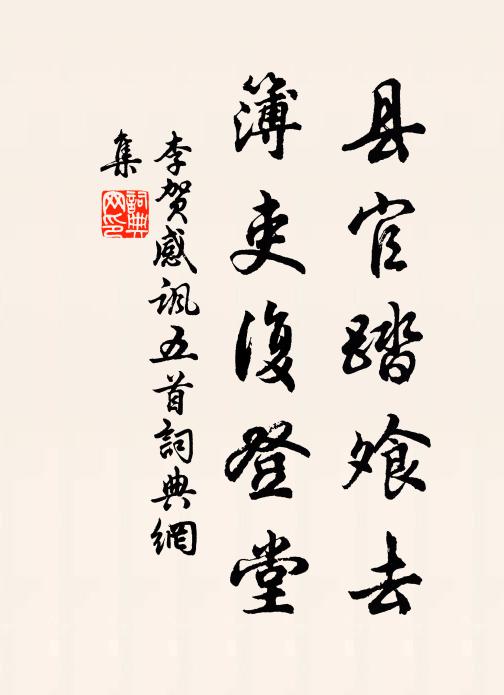 县官踏飧去
簿吏復登堂
李贺感讽五首詞典網
集
詞典网印